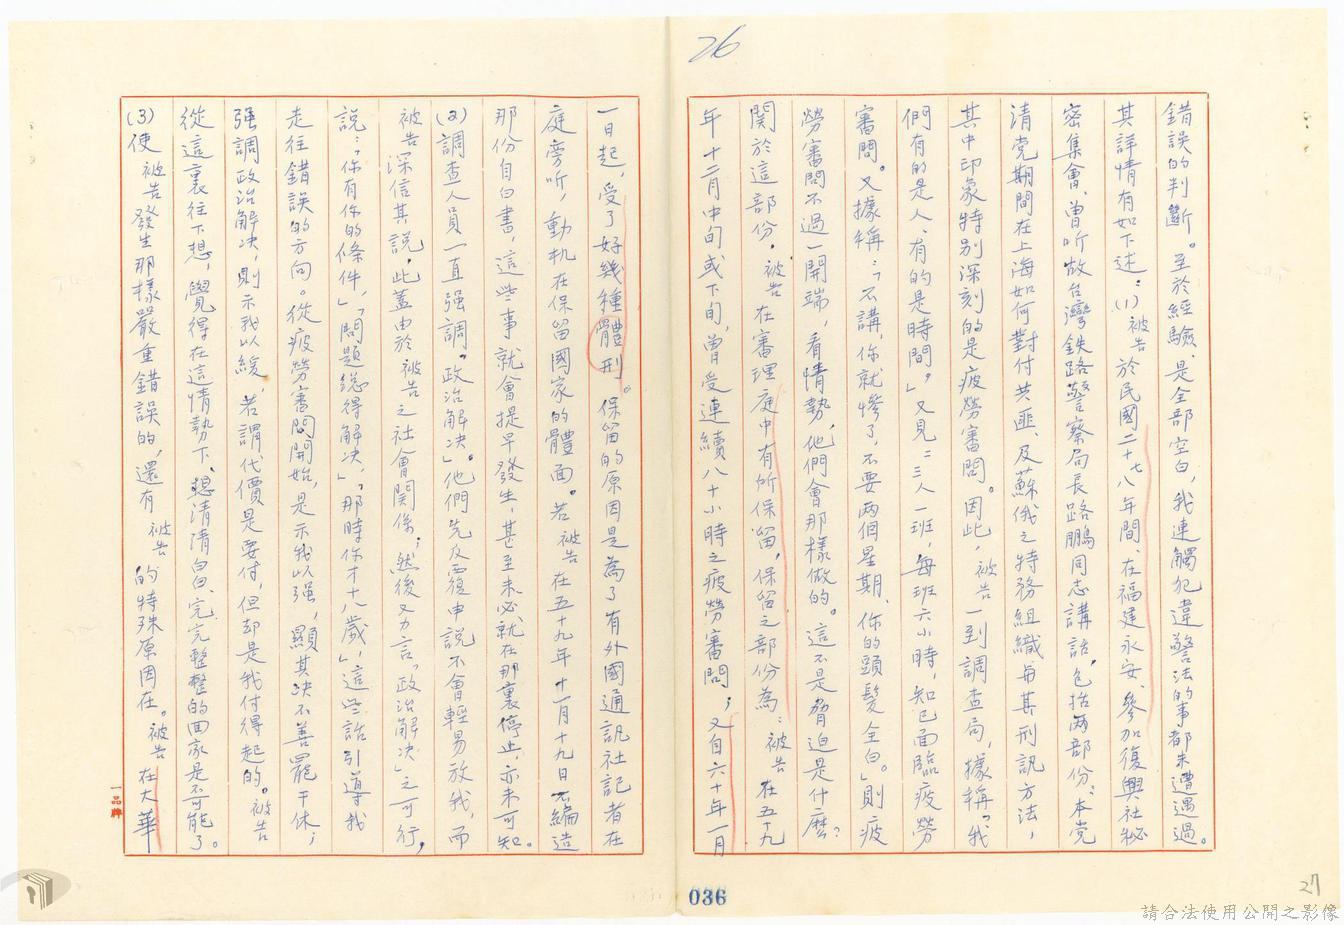 26
錯誤的判斷。至於經驗、是全部空白，我連觸犯違警法的事都未遭遇過。
其詳情有如下述：(1)被告於民國二十七八年間、在福建永安、參加復興社秘
密集會、曾听故台灣鉄路警察局長路鵬同志講話，包括兩部份：本党
清党期間在上海如何對付共匪、及蘇俄之特務組織與其刑訊方法，
其中印象特别深刻的是疲勞審問。因此，被告一到調查局，據稱「我
們有的是人、有的是時間。」又見二三人一班，每班六小時，知已面臨疲勞
審問。又據稱：「不講，你就慘了，不要两個星期、你的頭髮全白」。則疲
勞審問不過一開端，看情勢，他們會那樣做的。這不是脅迫是什麼？
関於這部份，被告在審理庭中有所保留，保留之部份為：被告在五十九
年十二月中旬或下旬，曾受連續八十小時之疲勞審問；又自六十年一月
一日起，受了好幾種體刑。保留的原因是為了有外國通訊社記者在
庭旁听，動机在保留國家的體面。若被告在五十九年十一月十九日不編造
那份自白書，這些事就會提早發生，甚至未必就在那裏停止，亦未可知。
(2)調查人員一直强調「政治解决」。他們先反覆申說不會輕易放我，而
被告深信其說，此蓋由於被告之社會関係；然後又力言「政治解决」之可行，
說：「你有你的條件，」「問題総得解决，」「那時你才十八歲」，這些話引導我
走往錯誤的方向。從疲勞審問開始，是示我以强，顯其决不善罷干休；
强調政治解决，則示我以緩，若謂代價是要付，但却是我付得起的。被告
從這裏往下想，覺得在這情勢下，想清清白白、完完整整的回家是不可能了。
(3)使被告發生那樣嚴重錯誤的，還有被告的特殊原因在。被告在大華
一品牌
036
27
請合法使用公開之影像